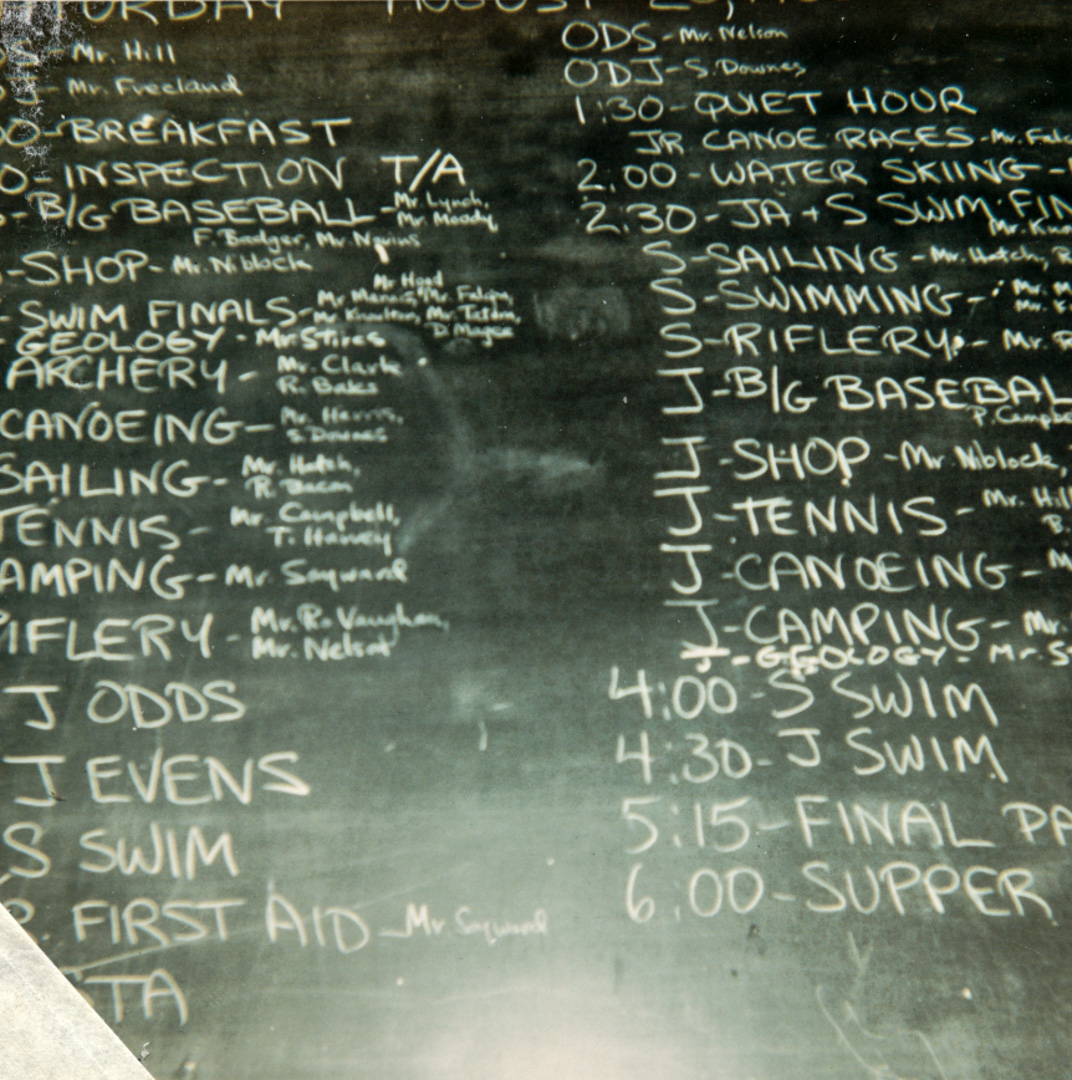 AUGUST
Mr. Hill
Mr. Freeland
BREAKFAST
INSPECTION T/A
B/G BASEBALL - Mr. Lynch,
Mr. Moody,
F. Badger, Mr. Nevius
SHOP - Mr. Niblock
Mr Hood
SWIM FINALS - Mr. Mannis, Mr. Felipe,
Mr. Knowlton, Mr. Tatem,
D. Magee
GEOLOGY - Mr. Stires
ARCHERY - Mr. Clark
R. Baks
CANOEING - Mr. Harris,
S. Downes
SAILING - Mr. Hatch,
R. Bacon
TENNIS - Mr. Campbell,
T. Harvey
AMPING - Mr. Sayward
IFLERY - Mr. R. Vaughan,
Mr. Nelson
J ODDS
J EVENS
S SWIM
FIRST AID - Mr Sayward
TA
ODS - Mr. Nelson
ODJ - S. Downes
1:30 - QUIET HOUR
JR CANOE RACES - Mr.
2:00 - WATER SKIING -
2:30 - JA + S SWIM FIN
S - SAILING - Mr. Hatch, R
S - SWIMMING - Mr. M
Mr. K
S - RIFLERY - Mr. R
J - B/G BASEBAL
P. Campbe
J - SHOP - Mr Niblock,
J - TENNIS - Mr. Hil
B.
J - CANOEING - M
J - CAMPING - Mr.
J - GEOLOGY - Mr. S
4:00 - S SWIM
4:30 - J SWIM
5:15 - FINAL PA
6:00 - SUPPER